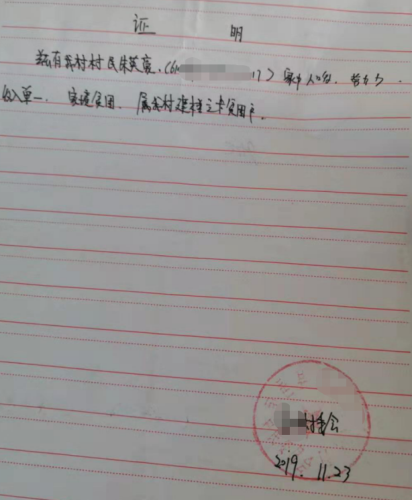 证 明
兹有我村村民朱英(6 17)家中人口多,劳力少,
收入单一,家境贫困,属我村建档立卡贫困户。
村委会
2019.11.23